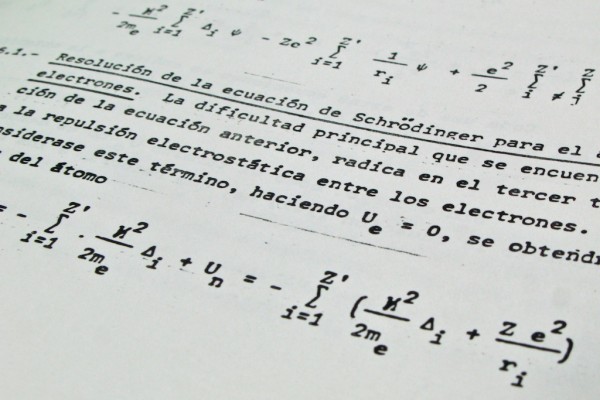 - ħ²/2mₑ Σ_{i=1}^{Z'} Δᵢ ψ - Ze² Σ_{i=1}^{Z'} 1/rᵢ ψ + e²/2 Σ_i^{Z'} ≠ Σ_j^{Z'}
6.1.- Resolución de la ecuación de Schrödinger para el
electrones. La dificultad principal que se encuen
ción de la ecuación anterior, radica en el tercer t
a la repulsión electrostática entre los electrones.
nsiderase este término, haciendo Uₑ = 0, se obtendr
del átomo
= - Σ_{i=1}^{Z'} . ħ²/2mₑ Δᵢ + Uₙ = - Σ_{i=1}^{Z'} (ħ²/2mₑ Δᵢ + Z e²/rᵢ)